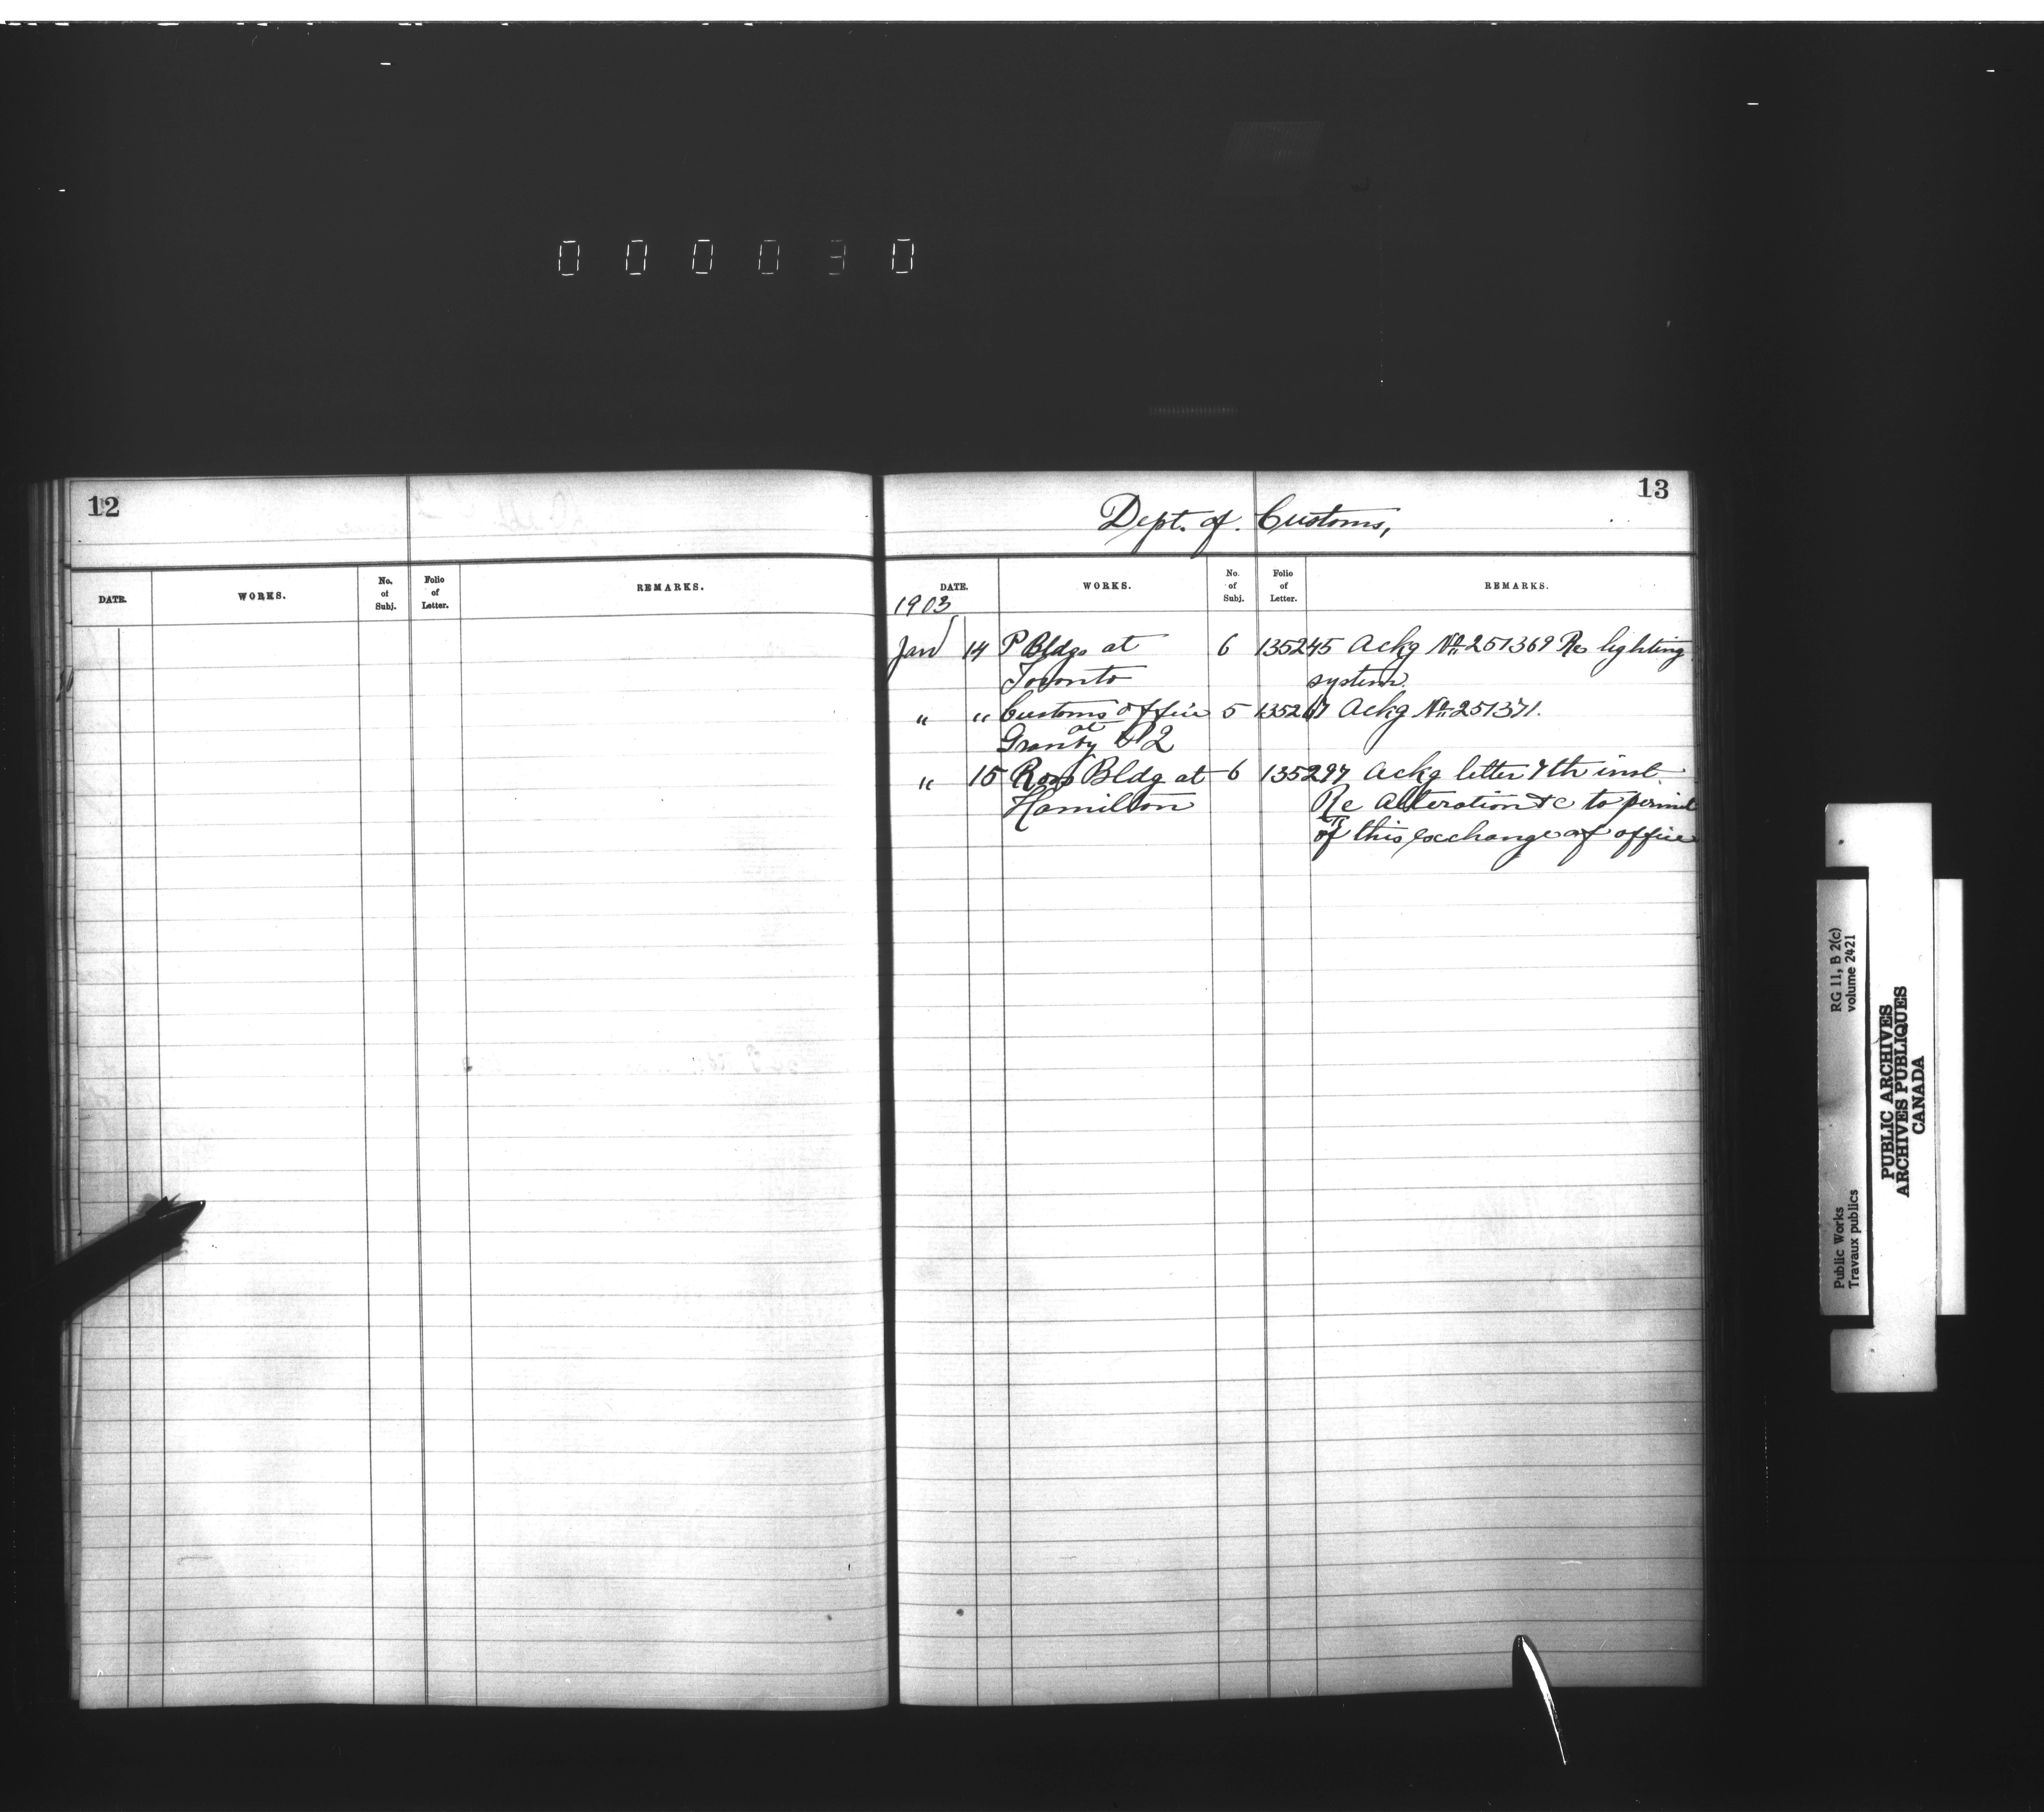 000030
12
DATE. WORKS. No. of Subj. Folio of Letter. REMARKS.
13
Dept. of Customs,
DATE. WORKS. No. of Subj. Folio of Letter. REMARKS.
1903
Jan 14 P Bldgs at 6 135245 Ackg No 251369 Re lighting
Toronto system.
" " Customs office 5 Ackg No 251371.
at
Granby
" 15 Ross Bldg at 6 135297 Ackg letter 7th inst.
Hamilton Re Alteration &c to permit
of this exchange of office
RG 11, B 2(c)
volume 2421
Public Works
Travaux publics
PUBLIC ARCHIVES
ARCHIVES PUBLIQUES
CANADA